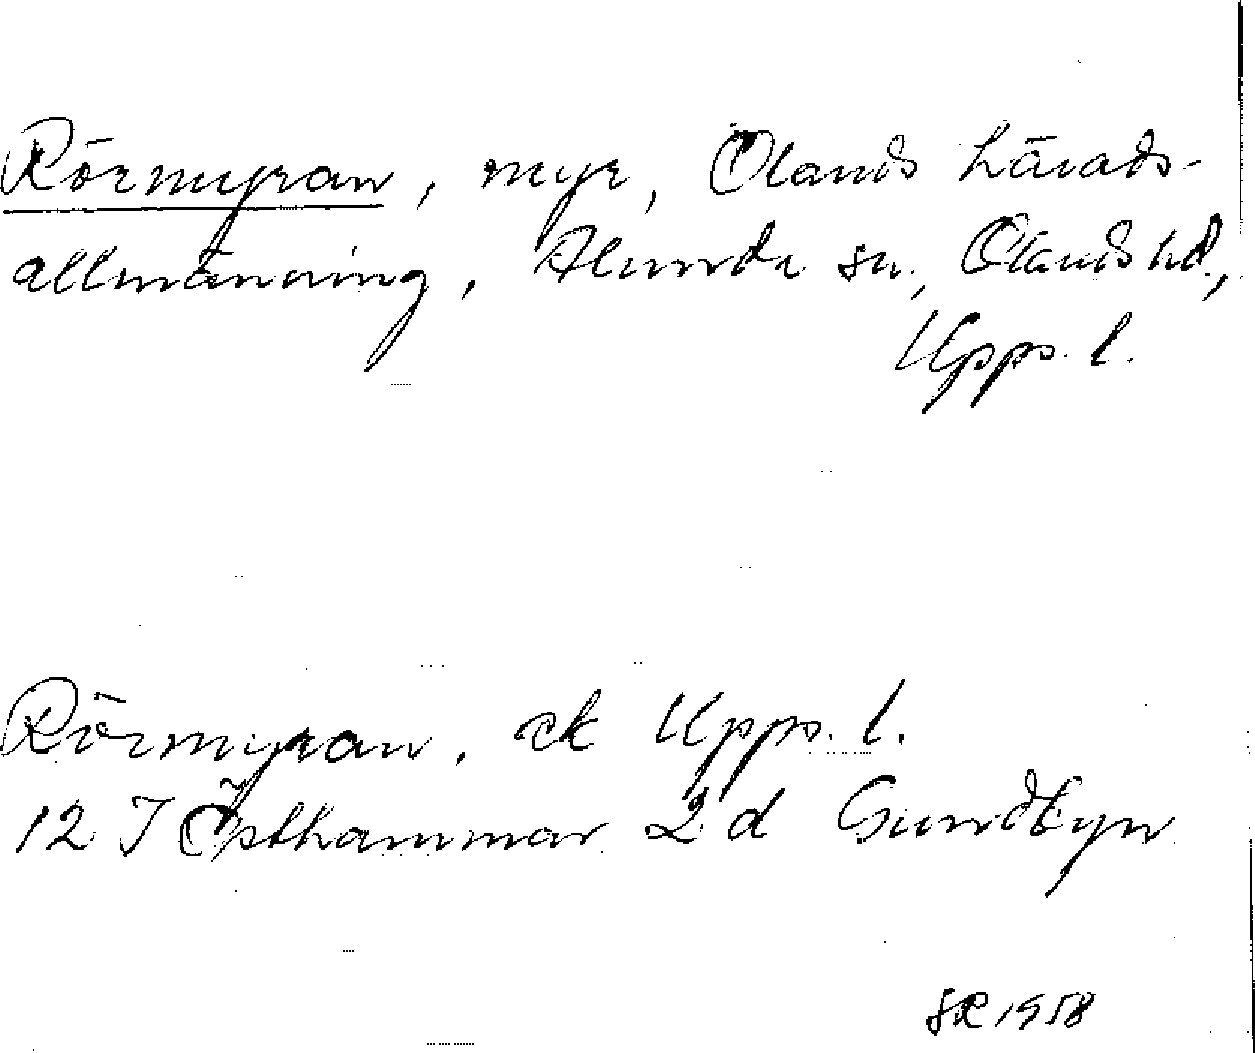 Rörmyran, myr, Olands härads-
allmänning, Alunda sn., Olands hd.,
Upps. l.
Rörmyran. ek Upps. l.
12 I Östhammar 2 d Gundbyn
SR 1958